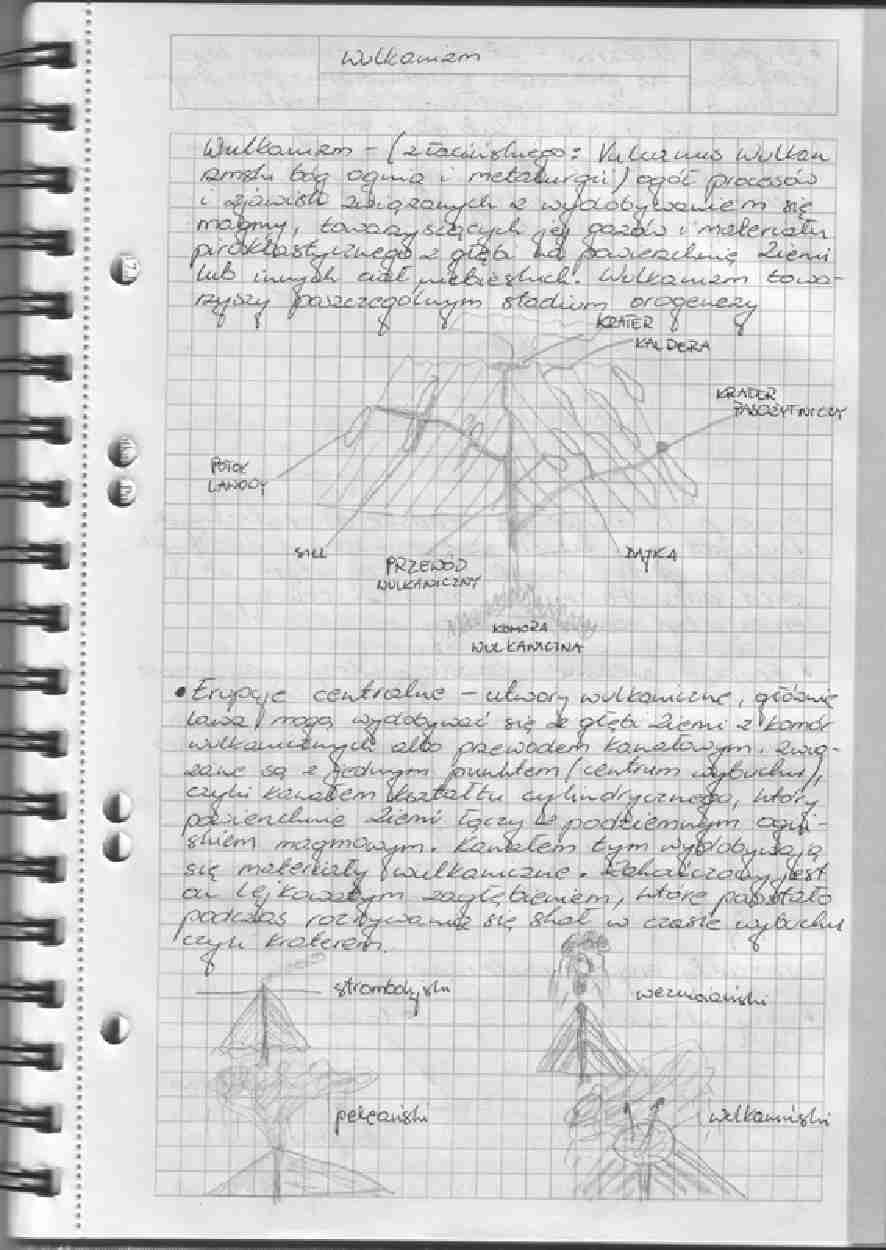 Wulkanizm
Wulkanizm - (z łacińskiego: Vulcanus Wulkan
rzmski bóg ognia i metalurgii) ogół procesów
i zjawisk związanych z wydobywaniem się
magmy, towarzyszących jej gazów i materiału
piroklastycznego z głębi na powierzchnię Ziemi
lub innych ciał niebieskich. Wulkanizm towa-
rzyszy poszczególnym stadium orogenezy
KRATER
KALDERA
KRADER
PASOŻYTNICZY
POTOK
LAWOWY
SILL
PRZEWÓD
WULKANICZNY
DAJKA
KOMORA
WULKANICZNA
• Erupcje centralne - utwory wulkaniczne, głównie
lawa mogą wydobywać się ze głębi Ziemi z komór
wulkanicznych albo przewodem kanałowym. Zwią-
zane są z jednym punktem (centrum wybuchu),
czyli kanałem kształtu cylindrycznego, który
powierzchnię Ziemi łączy z podziemnym ogni-
skiem magmowym. Kanałem tym wydobywają
się materiały wulkaniczne. Zakończony jest
on lejkowatym zagłębieniem, które powstało
podczas rozrywania się skał w czasie wybuchu
czyli kraterem.
strombolijski
wezuwiański
peleański
wulkaniński